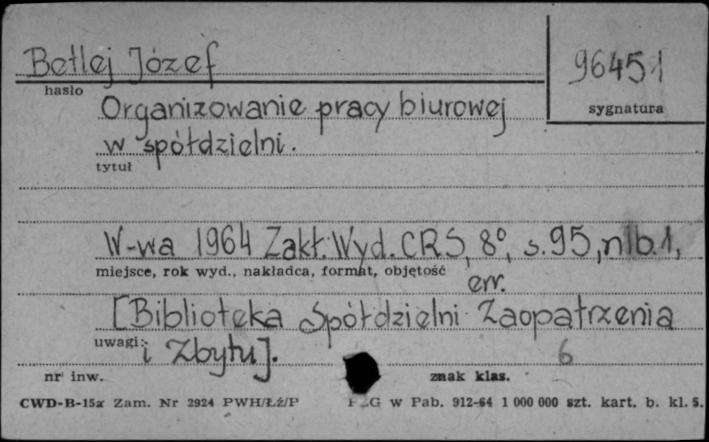 Betlej Józef
96451
hasło
sygnatura
Organizowanie pracy biurowej
w spółdzielni.
tytuł
W-wa 1964 Zakł. Wyd. CRS, 8°, s. 95, nlb. 1,
miejsce, rok wyd., nakładca, format, objętość
err.
[Biblioteka Spółdzielni Zaopatrzenia
uwagi:
i Zbytu].
6
nr inw.
znak klas.
CWD-B-15a Zam. Nr 2924 PWH/Łź/P
G w Pab. 912-64 1 000 000 szt. kart. b. kl. 5.